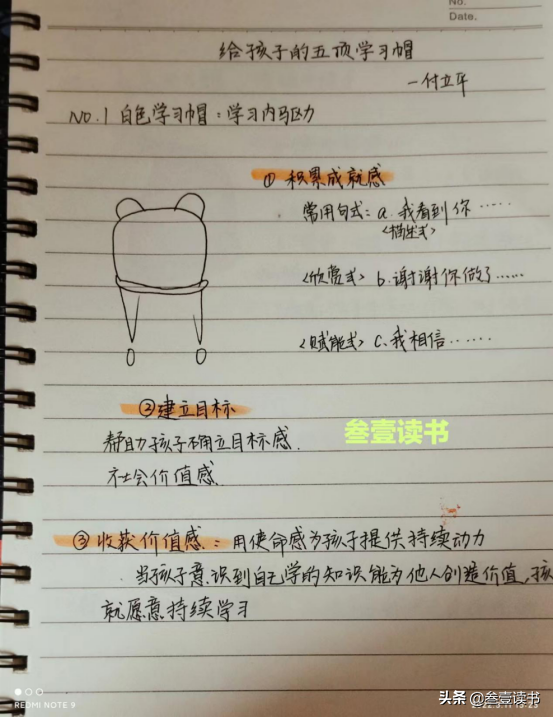 No.
Date.
给孩子的五顶学习帽
—付立平
NO.1 白色学习帽：学习内驱力
① 积累成就感
常用句式：a.我看到你……
<描述式>
<欣赏式> b.谢谢你做了……
<赋能式> c.我相信……
②建立目标
帮助孩子确立目标感.
社会价值感
叁壹读书
③ 收获价值感：用使命感为孩子提供持续动力
当孩子意识到自己学的知识能为他人创造价值,孩
就愿意持续学习
REDMI NOTE 9
头条 @叁壹读书